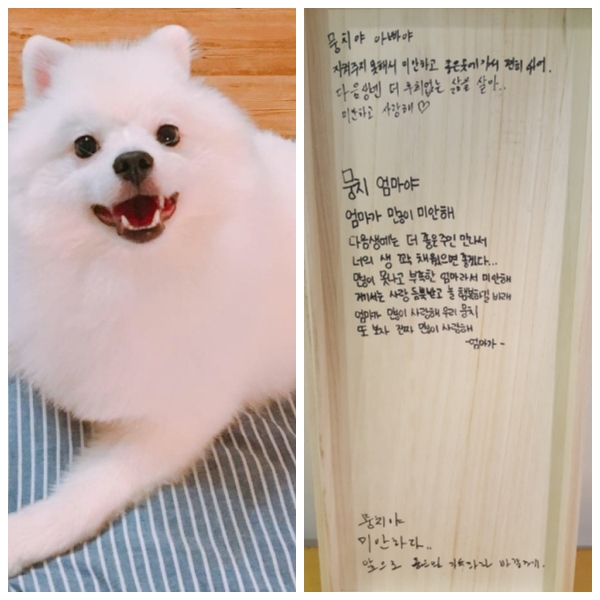 뭉치야 아빠야
지켜주지 못해서 미안하고 좋은곳에 가서 편히 쉬어.
다음생엔 더 후회없는 삶을 살아..
미안하고 사랑해♡
뭉치 엄마야
엄마가 많이 미안해
다음생에는 더 좋은주인 만나서
너의 생 꽉 채웠으면 좋겠다...
많이 못나고 부족한 엄마라서 미안해
거기서는 사랑 듬뿍받고 늘 행복하길 바래
엄마가 많이 사랑해 우리 뭉치
또 보자 진짜 많이 사랑해
-엄마가-
뭉치야
미안하다..
앞으로